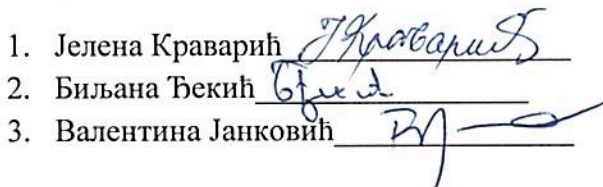 1. Јелена Краварић Ј Краварић
2. Биљана Ђекић
3. Валентина Јанковић